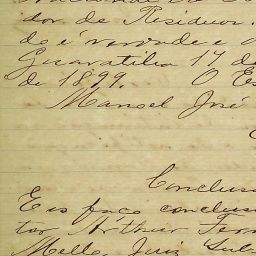 dor de Residuos.
do é verdade e
Guaratiba 17 de
de 1899. O Es
Manoel José
Conclus
E os faço conclus
tor Arthur Fer
Mello, Juiz Sub